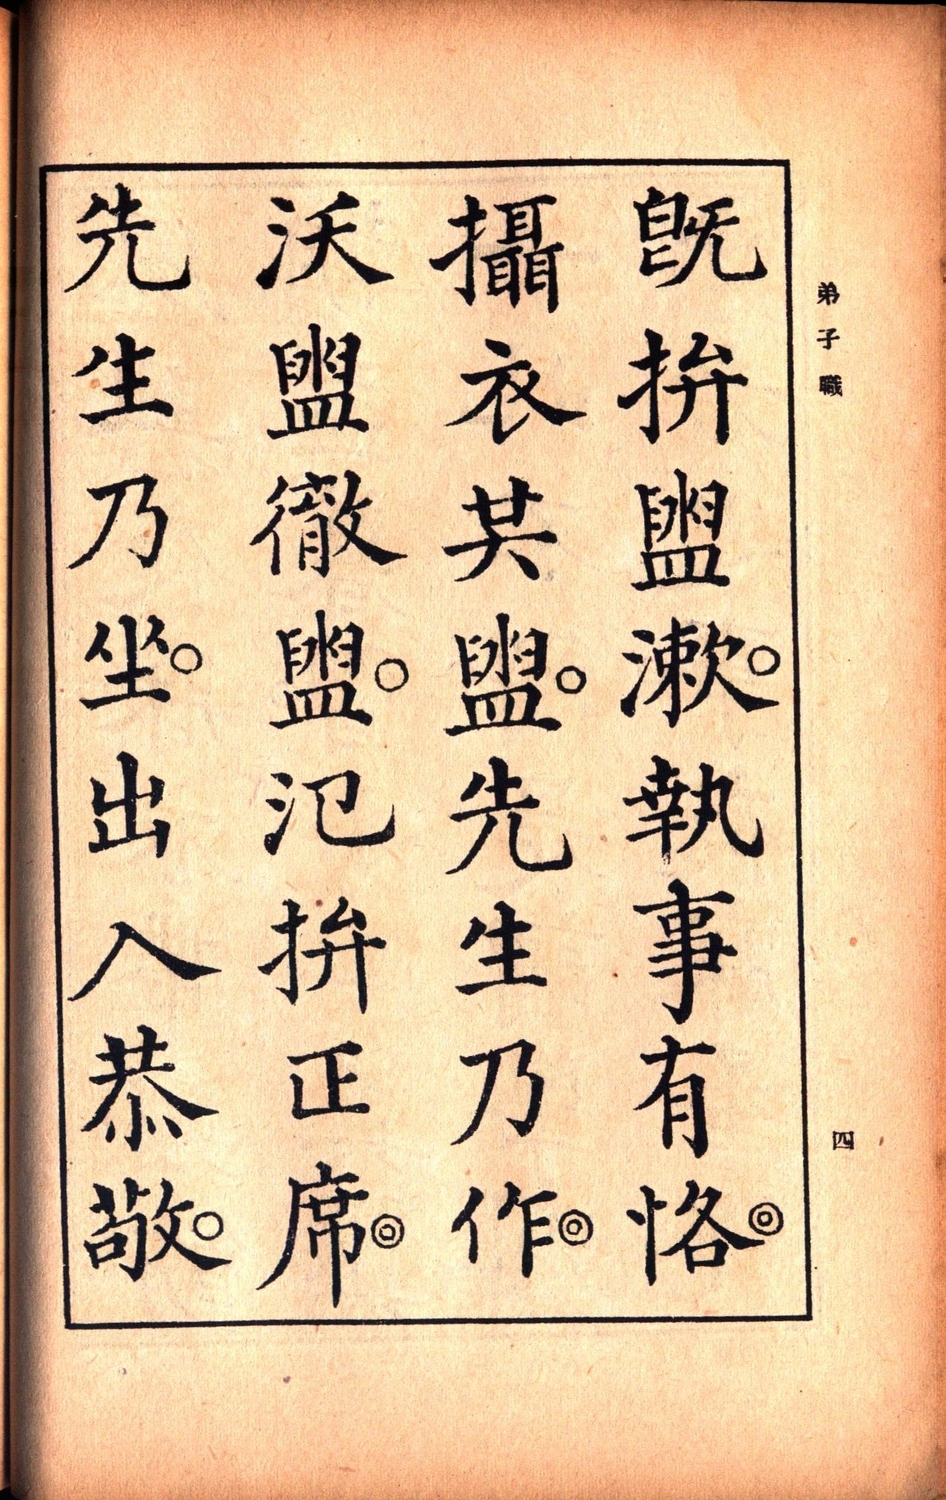 弟子職
四
既拚盥漱○執事有恪◎
攝衣共盥○先生乃作◎
沃盥徹盥○氾拚正席◎
先生乃坐○出入恭敬○